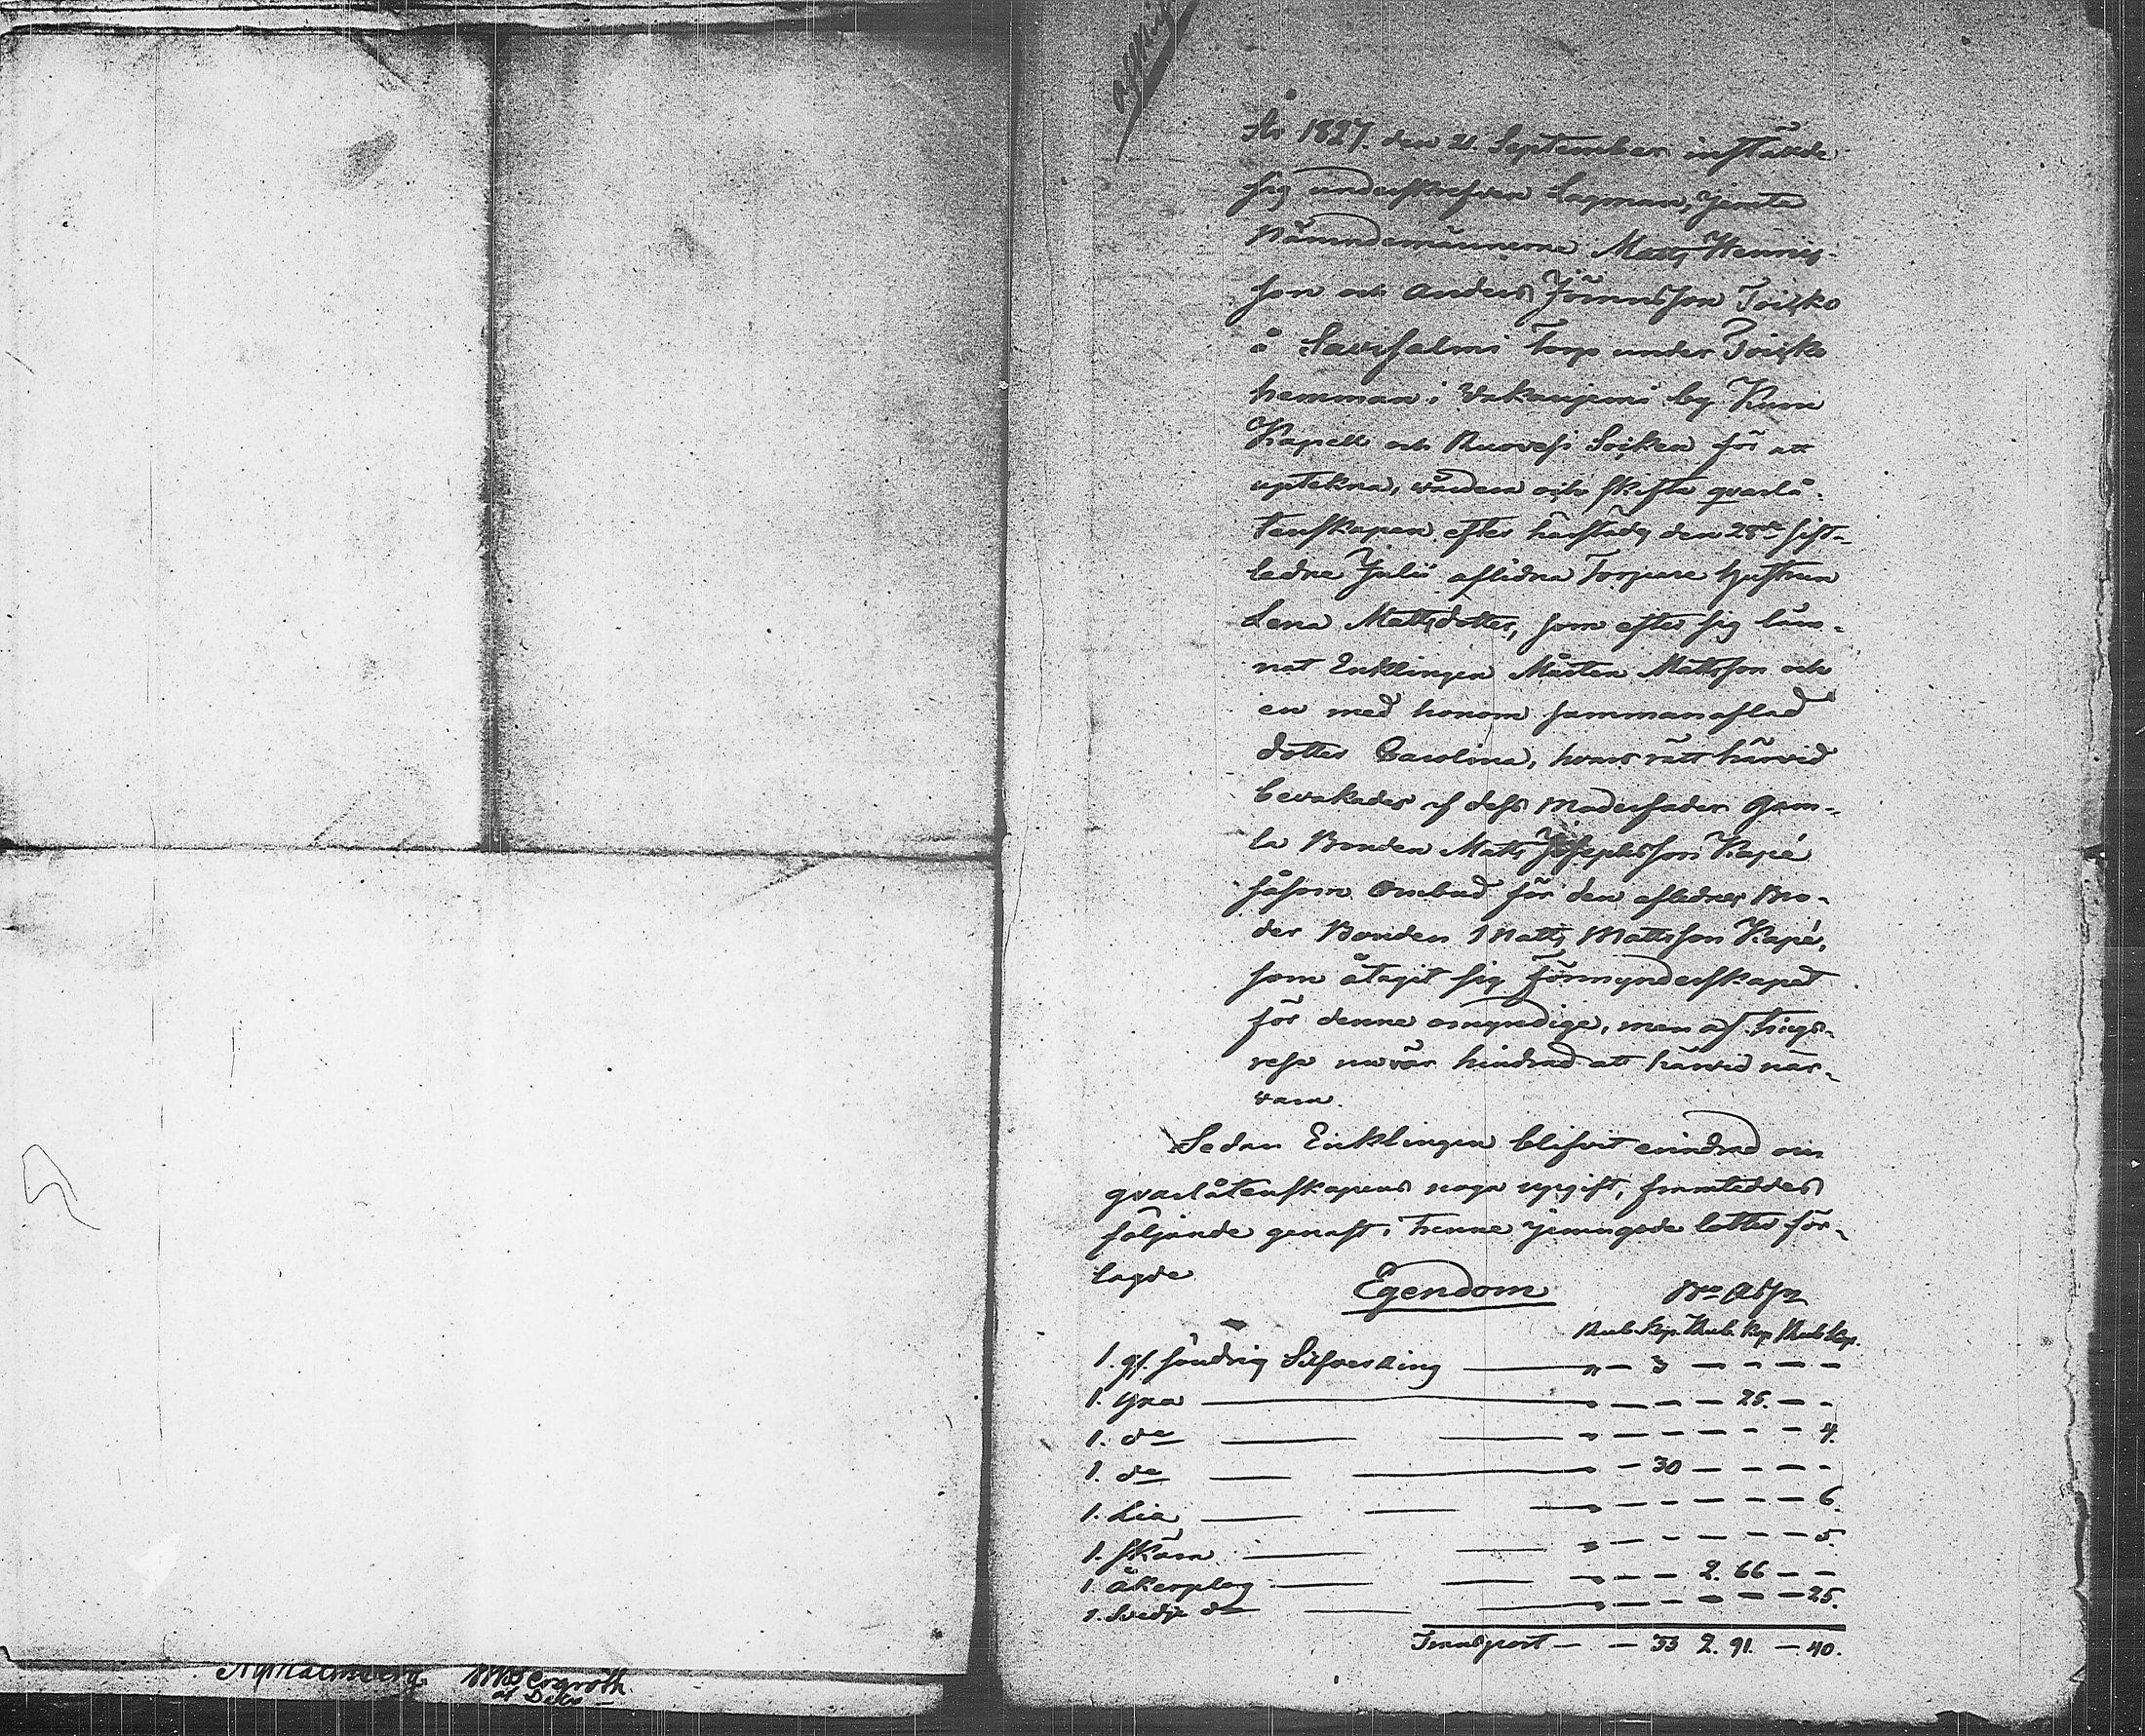 År 1827. den 21 September instälde
sig underskrefven Lagman, jemte
Nämndemännerne Matts Henrics-
son och Anders Jöransson Toisko
å Savisalmi Torp under Toisko
hemman i Wakarijerwi by Kuru
Kapell och Ruovesi Socken för att
uptekna, värdera och skifta qvarlå-
tenskapen efter härstädes den 28de sist-
ledne Julii aflidna Torpare hustrun
Lena Mattsdotter, som efter sig läm-
nat Enklingen Mårten Mattsson och
en med honom sammanaflad
dotter Carolina, hvars rätt härvid
bevakades af dess Moderfader Gam-
la Bonden Matts Josephsson Kapé
såsom Ombud för den aflednes Bro-
der Bonden Matts Mattsson Kapé,
som åtagit sig Förmynderskapet
för denne omyndige, men af
resa nu var hindrad att härvid när-
vara.
Sedan Enklingen blifvit erindrad om
qvarlåtenskapens noga upgift, framteddes
följande genast i trenne jemngode lotter för-
lagde
Egendom
Rub. Kop. Rub. Kop. Rub. Kop.
1. gl. söndrig Silfversking — — 3 — — — —
1. yxa — — — — 25. — —
1. do — — — — — — 4.
1. do — — 30 — — — —
1. Lia — — — — — — 6.
1. skära — — — — — — 5.
1. åkerplog — — — 2. 66 — —
1. Svedje do — — — — — 25.
Transport — — 33 2. 91. — 40.